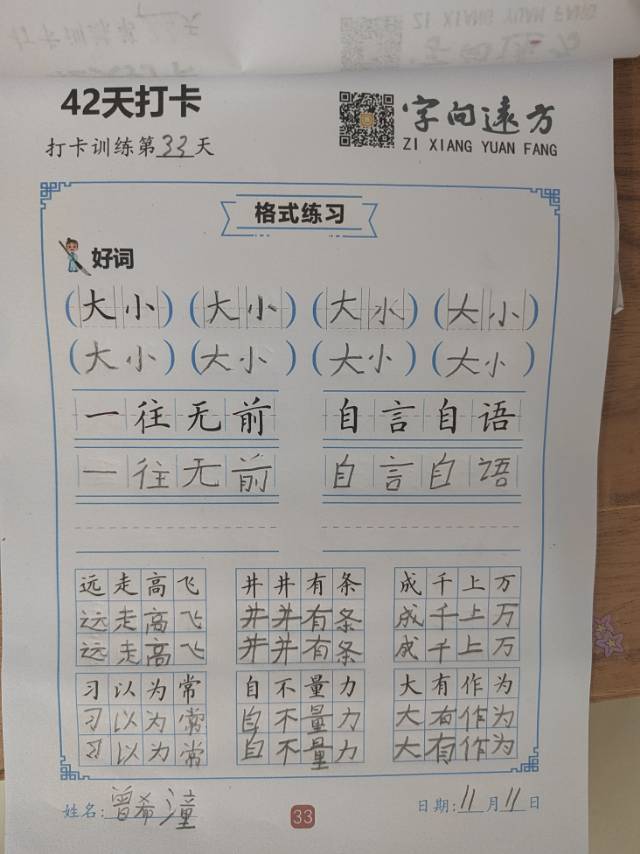 42天打卡
打卡训练第33天
字向远方
ZI XIANG YUAN FANG
格式练习
好词
(大小)(大小)(大水)(大小)
(大小)(大小)(大小)(大小)
一往无前 自言自语
一往无前 自言自语
远走高飞 井井有条 成千上万
远走高飞 井井有条 成千上万
远走高飞 井井有条 成千上万
习以为常 自不量力 大有作为
习以为常 自不量力 大有作为
习以为常 自不量力 大有作为
姓名:曾希潼 33 日期:11月11日